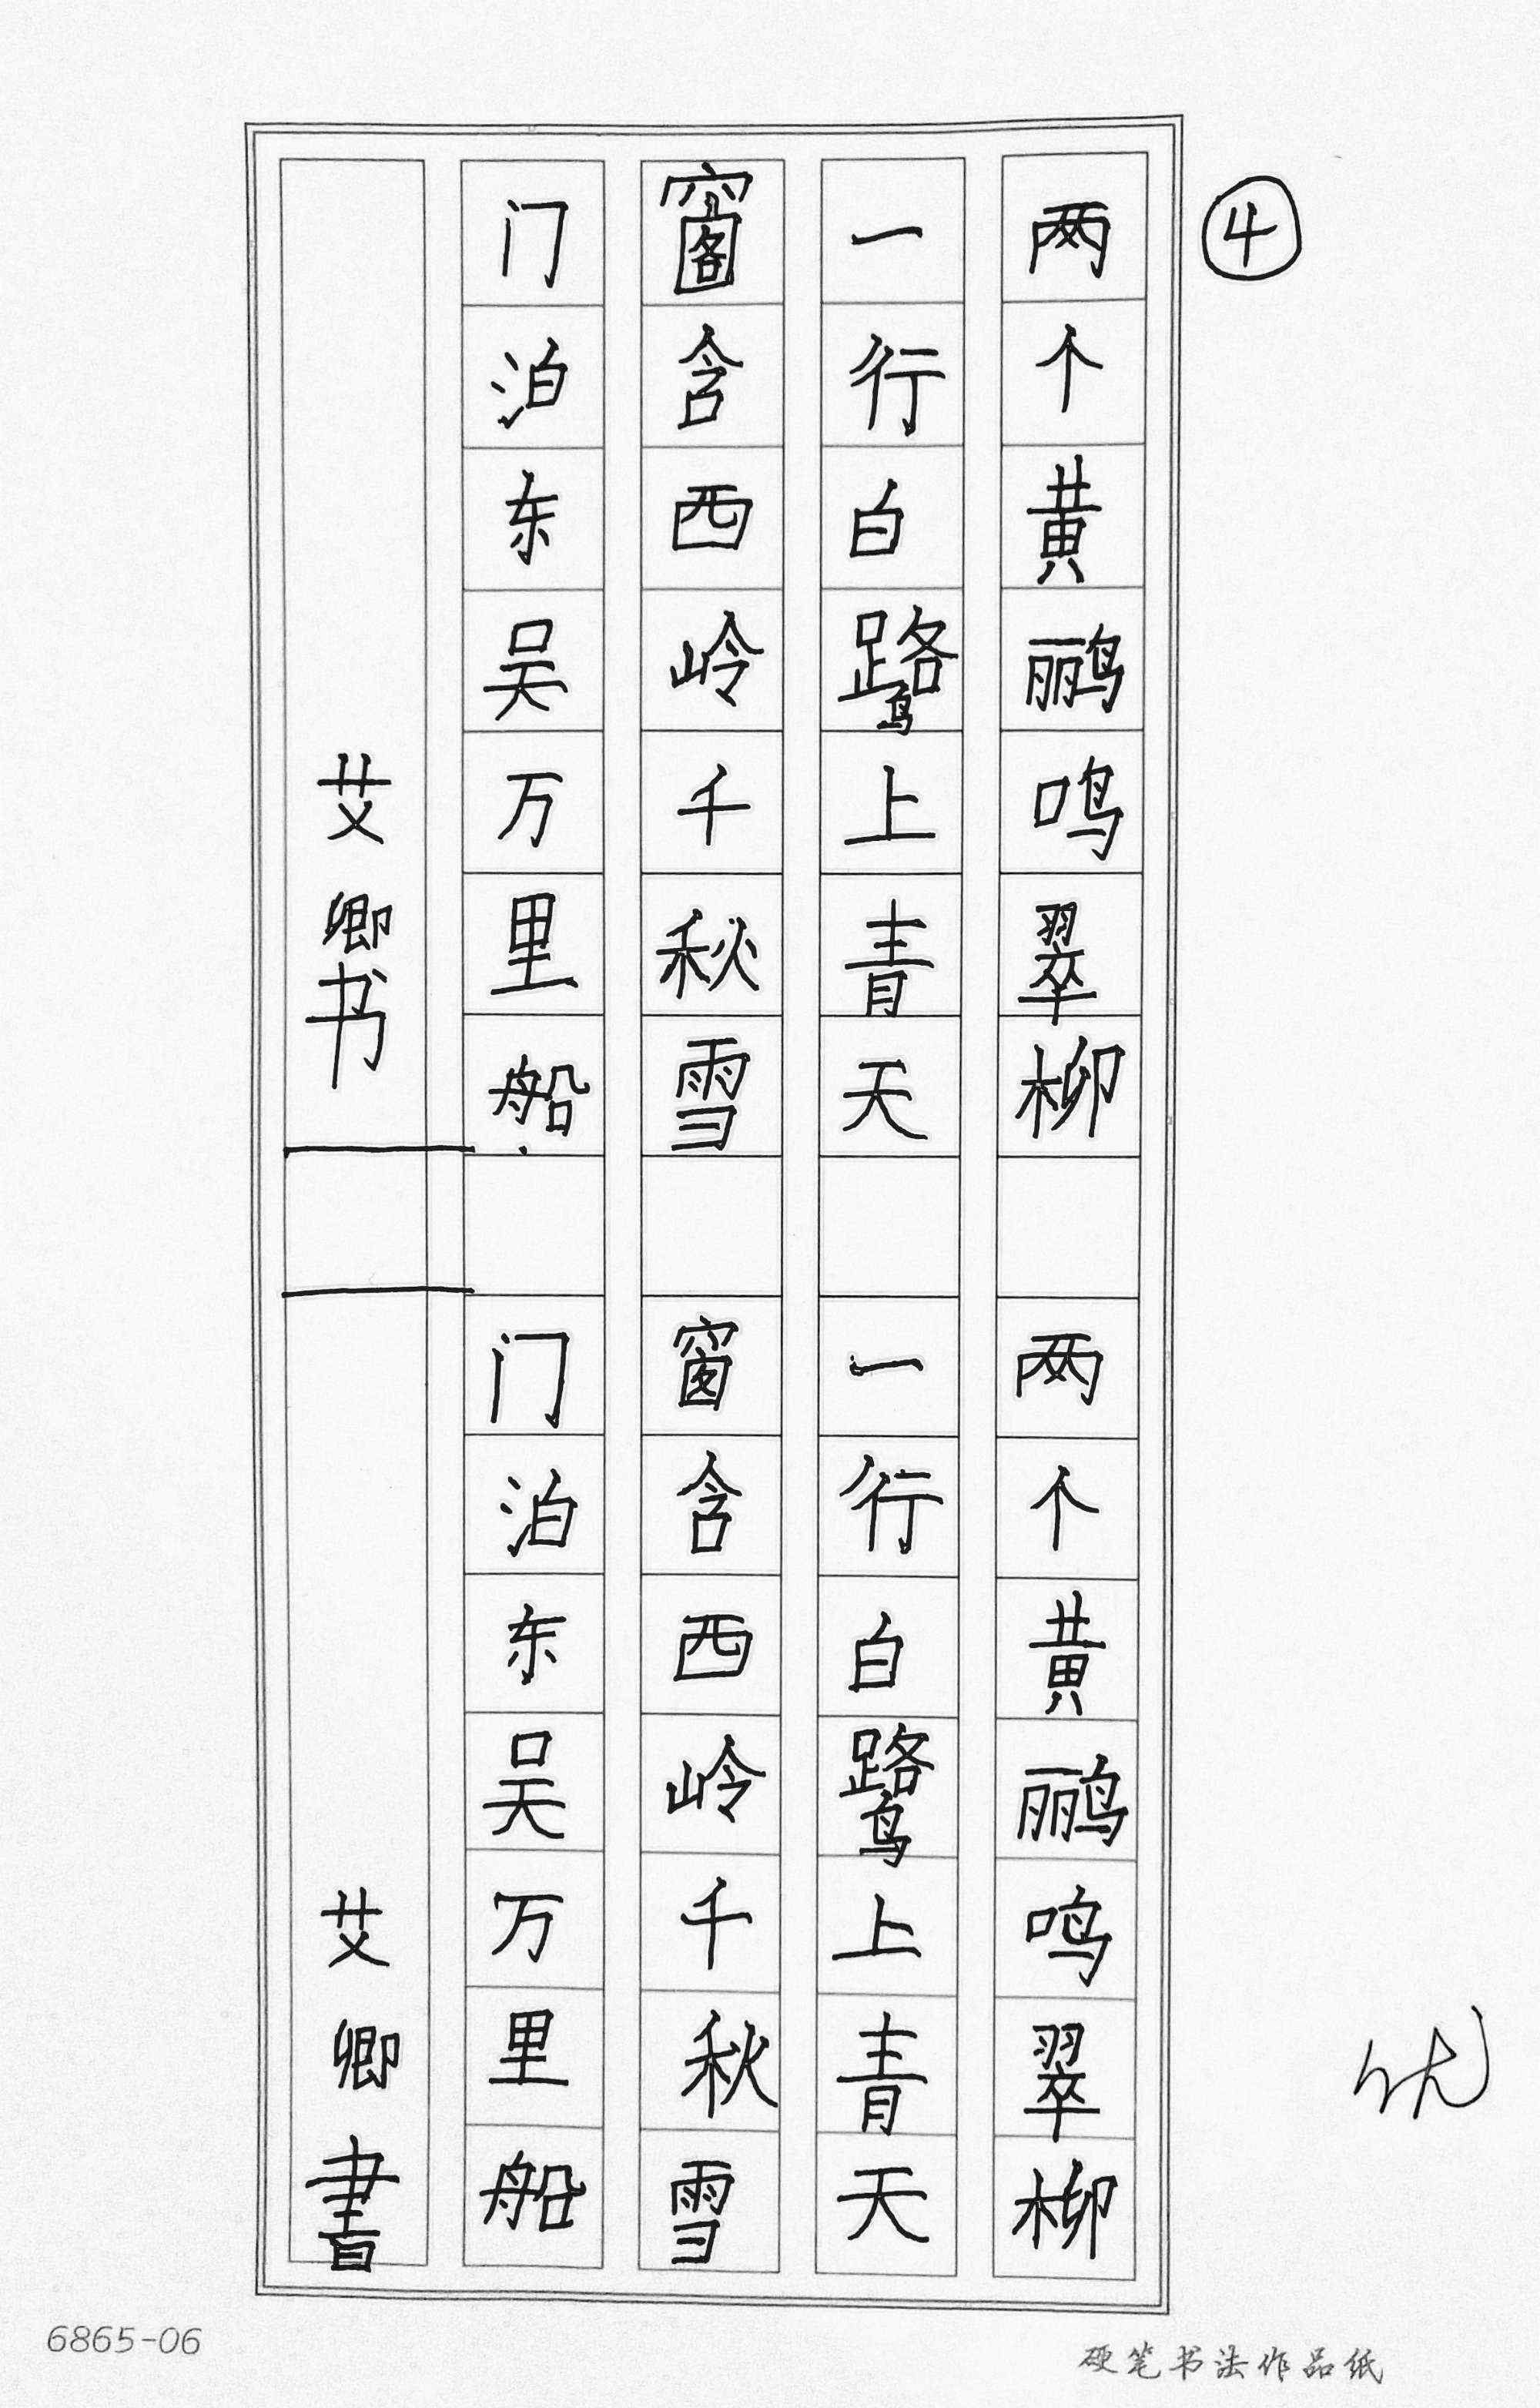 ④
两个黄鹂鸣翠柳
一行白鹭上青天
窗含西岭千秋雪
门泊东吴万里船
艾卿书
两个黄鹂鸣翠柳
一行白鹭上青天
窗含西岭千秋雪
门泊东吴万里船
艾卿書
优
6865-06
硬笔书法作品纸